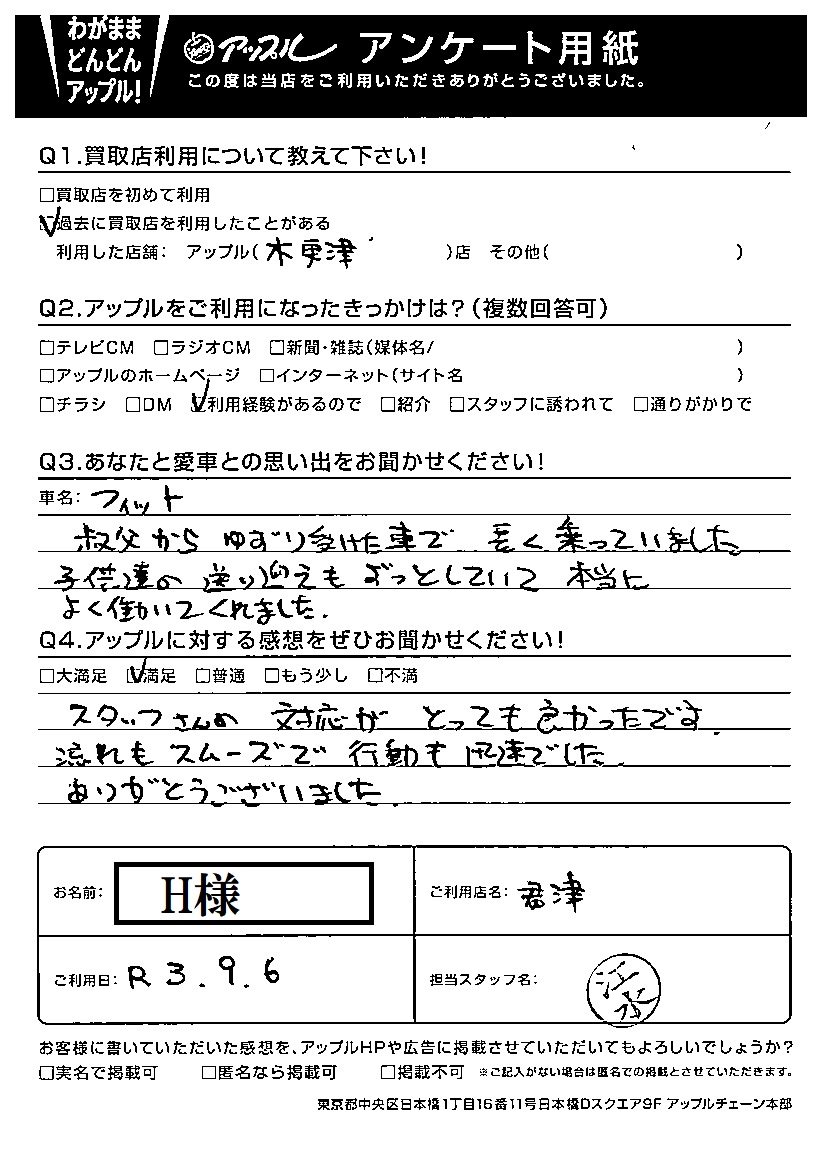 わがまま
どんどん
アップル!
アップル アンケート用紙
この度は当店をご利用いただきありがとうございました。
Q1.買取店利用について教えて下さい!
□買取店を初めて利用
☑過去に買取店を利用したことがある
利用した店舗: アップル(木更津)店 その他( )
Q2.アップルをご利用になったきっかけは?(複数回答可)
□テレビCM □ラジオCM □新聞・雑誌(媒体名/ )
□アップルのホームページ □インターネット(サイト名 )
□チラシ □DM ☑利用経験があるので □紹介 □スタッフに誘われて □通りがかりで
Q3.あなたと愛車との思い出をお聞かせください!
車名: フィット
叔父から ゆずり受けた車で 長く乗っていました
子供達の送り迎えもずっとしていて 本当に
よく働いてくれました.
Q4.アップルに対する感想をぜひお聞かせください!
□大満足 ☑満足 □普通 □もう少し □不満
スタッフさんの 対応が とっても良かったです.
流れもスムーズで 行動も迅速でした.
ありがとうございました.
お名前: H様
ご利用店名: 君津
ご利用日: R3.9.6
担当スタッフ名:
お客様に書いていただいた感想を、アップルHPや広告に掲載させていただいてもよろしいでしょうか?
□実名で掲載可 □匿名なら掲載可 □掲載不可 ※ご記入がない場合は匿名での掲載とさせていただきます。
東京都中央区日本橋1丁目16番11号日本橋Dスクエア9F アップルチェーン本部